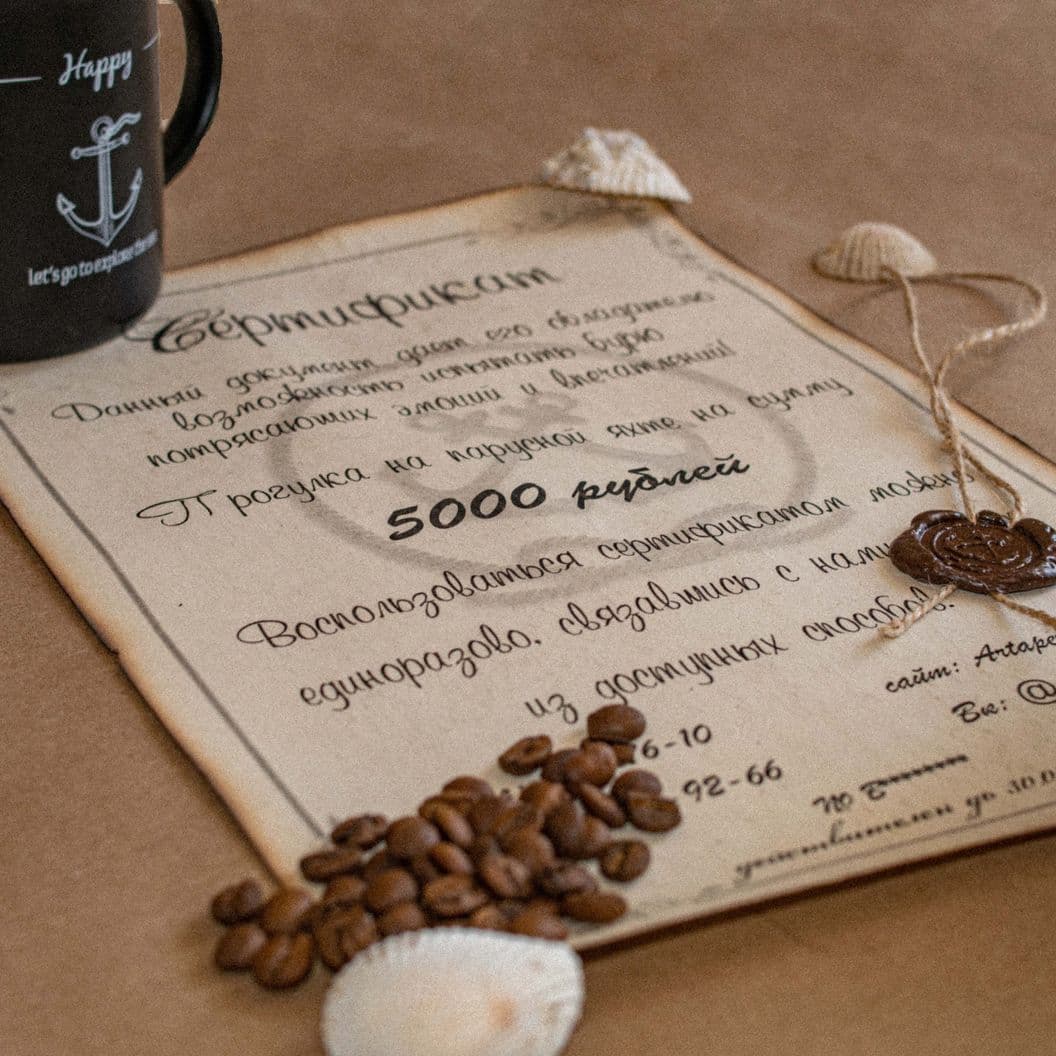 Happy
let's go to explore the
Сертификат
Данный документ дает его обладателю
возможность испытать бурю
потрясающих эмоций и впечатлений!
Прогулка на парусной яхте на сумму
5000 рублей
Воспользоваться сертификатом можно
единоразово, связавшись с нами
из доступных способов.
6-10
92-66
сайт:
Вк: @
№
действителен до 30.0